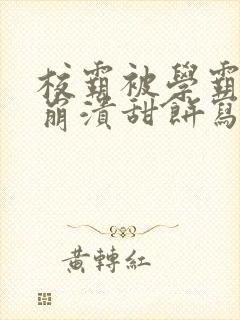 校霸被學霸
崩潰甜餅寫
黃轉紅